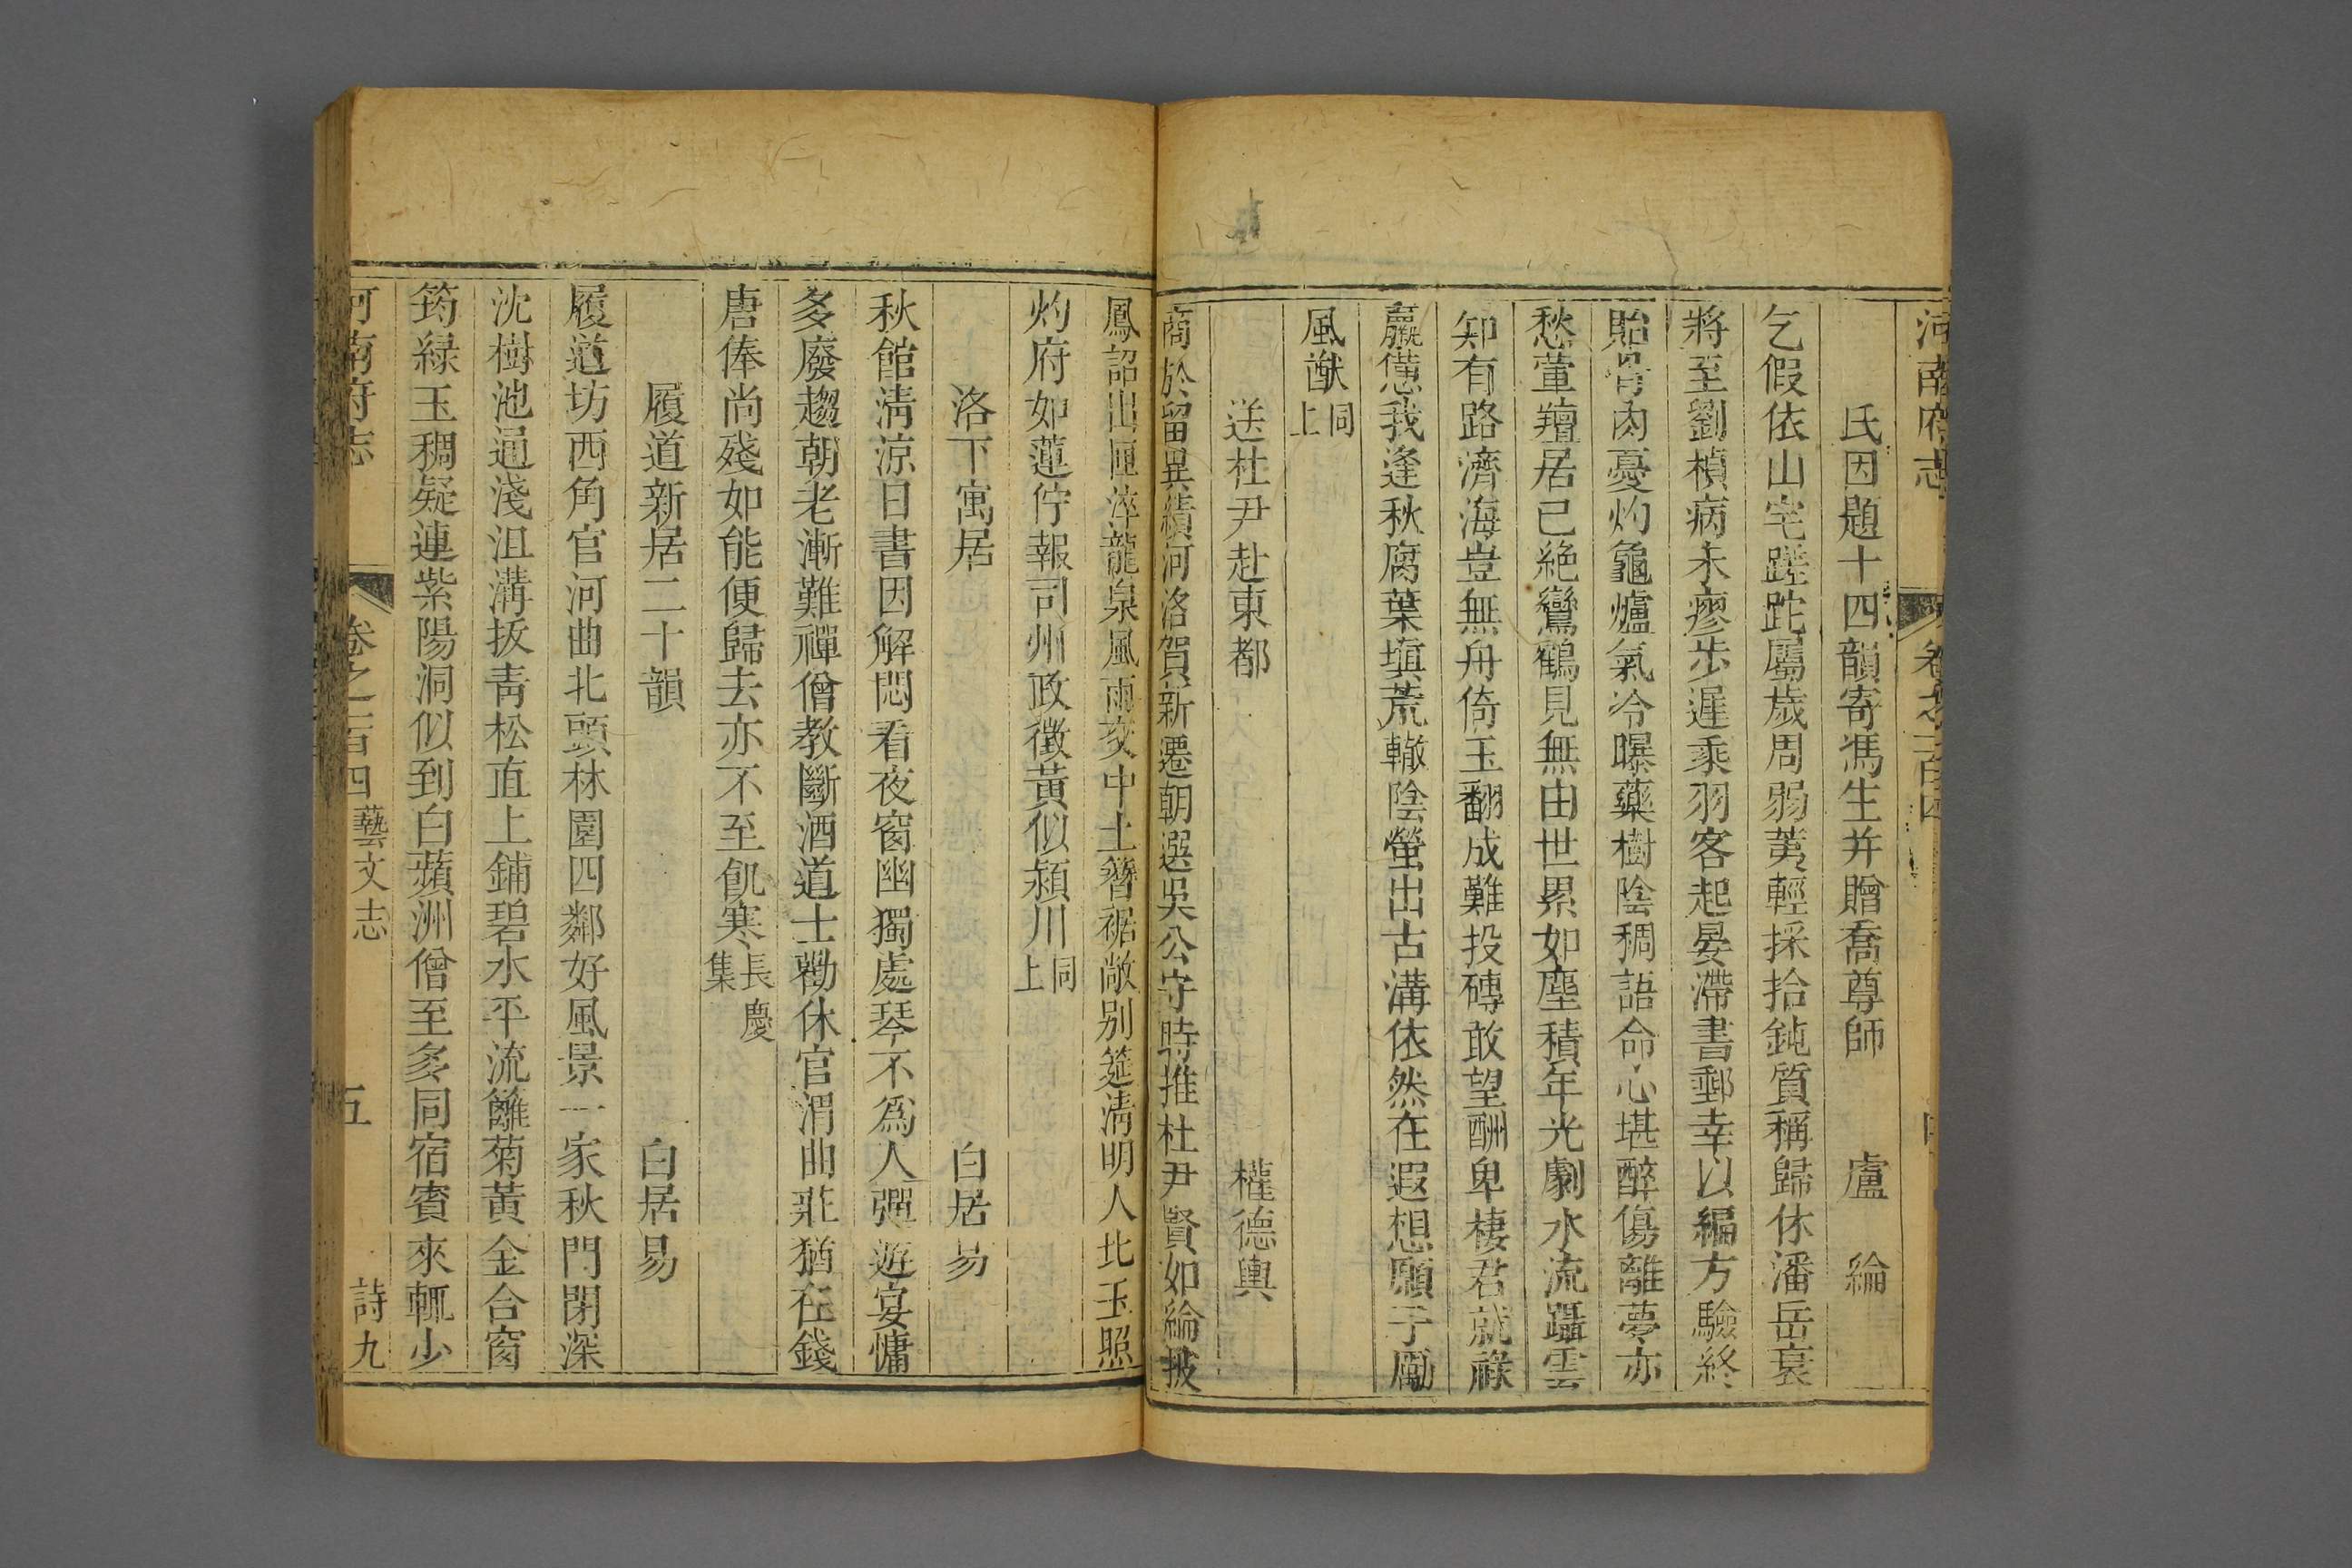 河南府志 卷之一百四
氏因題十四韻寄馮生并贈喬尊師 盧綸
乞假依山宅蹉跎屬歲周弱荑輕採拾鈍質稱歸休潘岳衰
將至劉楨病未瘳步遲乘羽客起晏滯書郵幸以編方驗終
貽骨肉憂灼龜爐氣冷曝藥樹陰稠語命心堪醉傷離夢亦
愁葷羶居已絕鸞鶴見無由世累如塵積年光劇水流躡雲
知有路濟海豈無舟倚玉翻成難投磚敢望酬卑棲君就祿
羸憊我逢秋腐葉塡荒轍陰螢出古溝依然在遐想願子勵
風猷同上
送杜尹赴東都 權德輿
商於留異績河洛賀新遷朝選吳公守時推杜尹賢如綸披
鳳詔出匣淬龍泉風雨交中土簪裾敞別筵淸明人比玉照
灼府如蓮佇報司州政徵黃似潁川同上
洛下寓居 白居易
秋館淸涼日書因解悶看夜窗幽獨處琴不爲人彈遊宴慵
多廢趨朝老漸難禪僧教斷酒道士勸休官渭曲莊猶在錢
唐俸尚殘如能便歸去亦不至飢寒長慶集
履道新居二十韻 白居易
履道坊西角官河曲北頭林園四鄰好風景一家秋門閉深
沈樹池通淺沮溝拔靑松直上鋪碧水平流籬菊黃金合窗
筠綠玉稠疑連紫陽洞似到白蘋洲僧至多同宿賓來輒少
河南府志 卷之一百四 藝文志 五 詩九